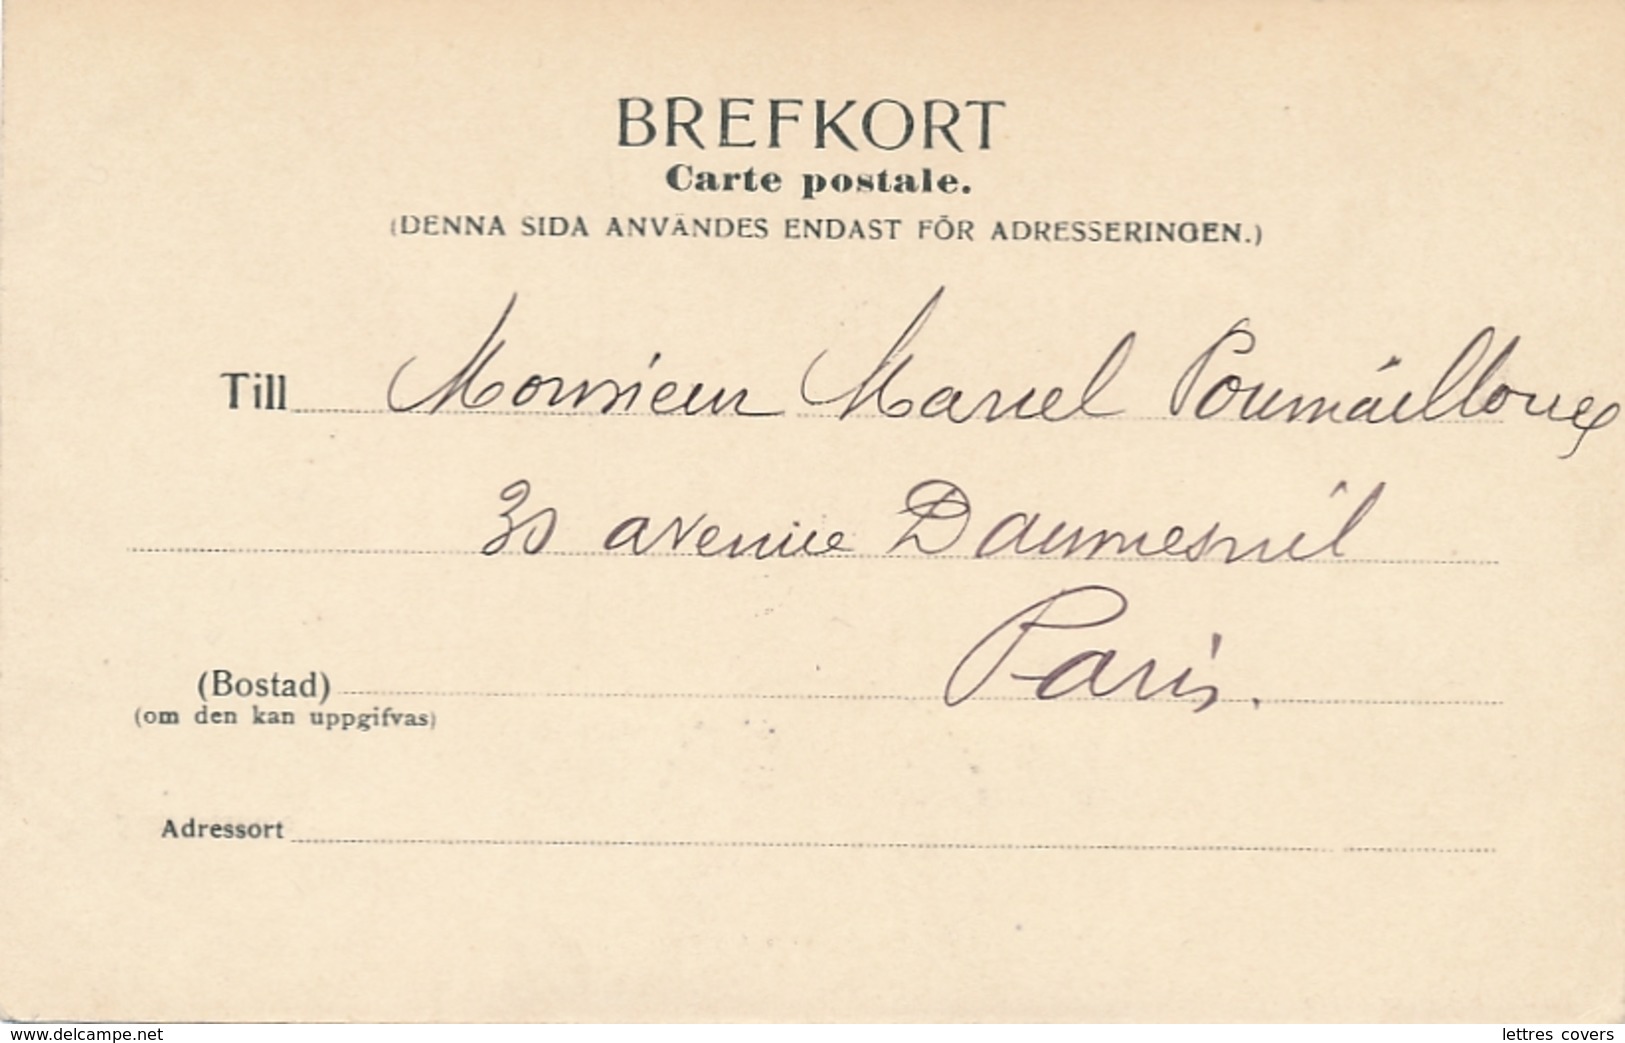 BREFKORT
Carte postale.
(DENNA SIDA ANVÄNDES ENDAST FÖR ADRESSERINGEN.)
Till Monsieur Marcel Poumailloux
30 avenue Daumesnil
Paris.
(Bostad)
(om den kan uppgifvas)
Adressort
www.delcampe.net
lettres covers